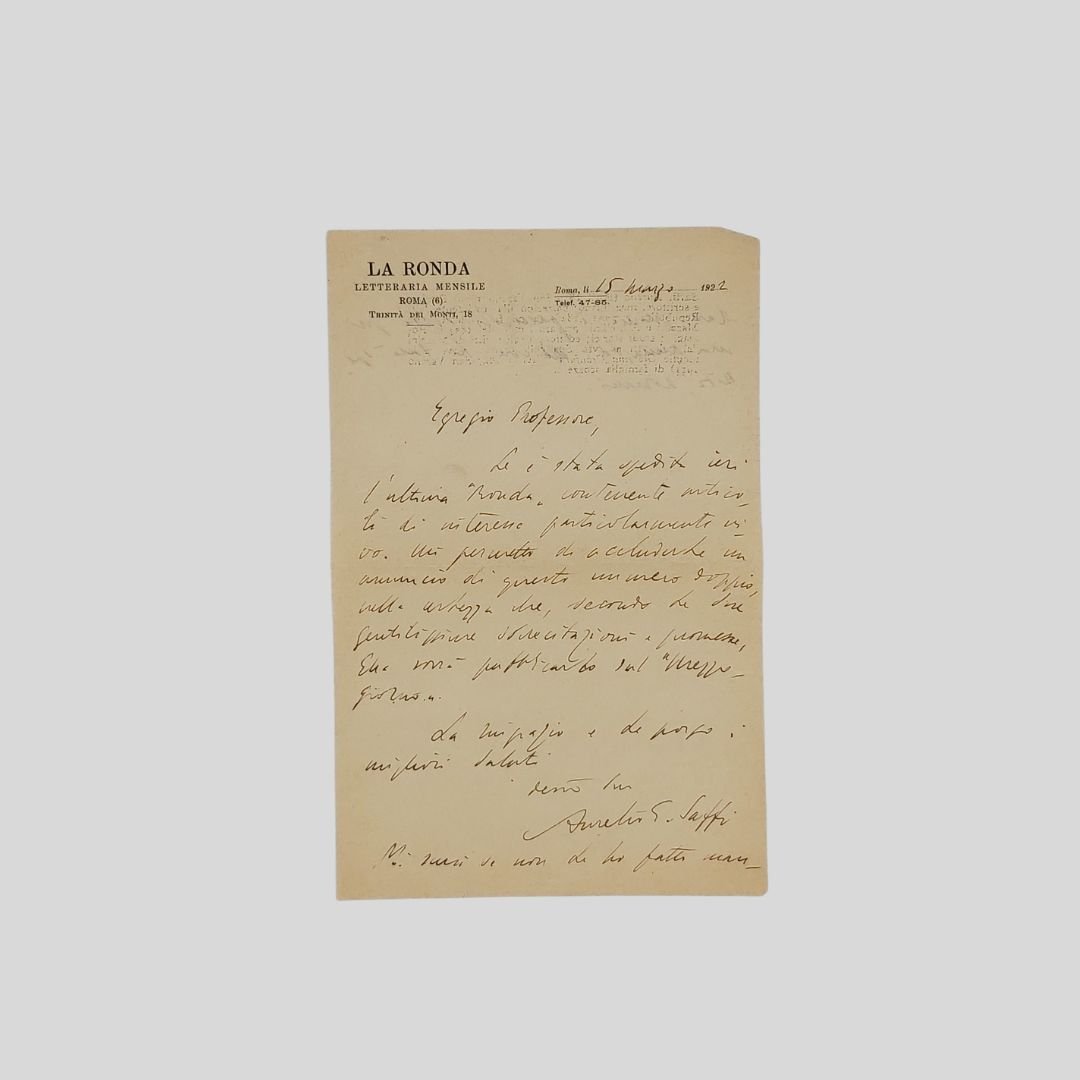 LA RONDA
LETTERARIA MENSILE
ROMA (6)
TRINITÀ DEI MONTI, 18
Roma, li 15 marzo 1922
Telef. 47-86.
Egregio Professore,
Le è stata spedita ieri
l'ultima "Ronda„ contenente artico-
li di interesse particolarmente vi
vo. Mi permetto di accluderLe un
annuncio di questo numero doppio,
nella certezza che, secondo le Sue
gentilissime sollecitazioni e promesse,
Ella vorrà pubblicarlo sul "Mezzo-
giorno„.
La ringrazio e Le porgo i
migliori saluti
Aurelio E. Saffi
Mi scusi se non Le ho fatto man-